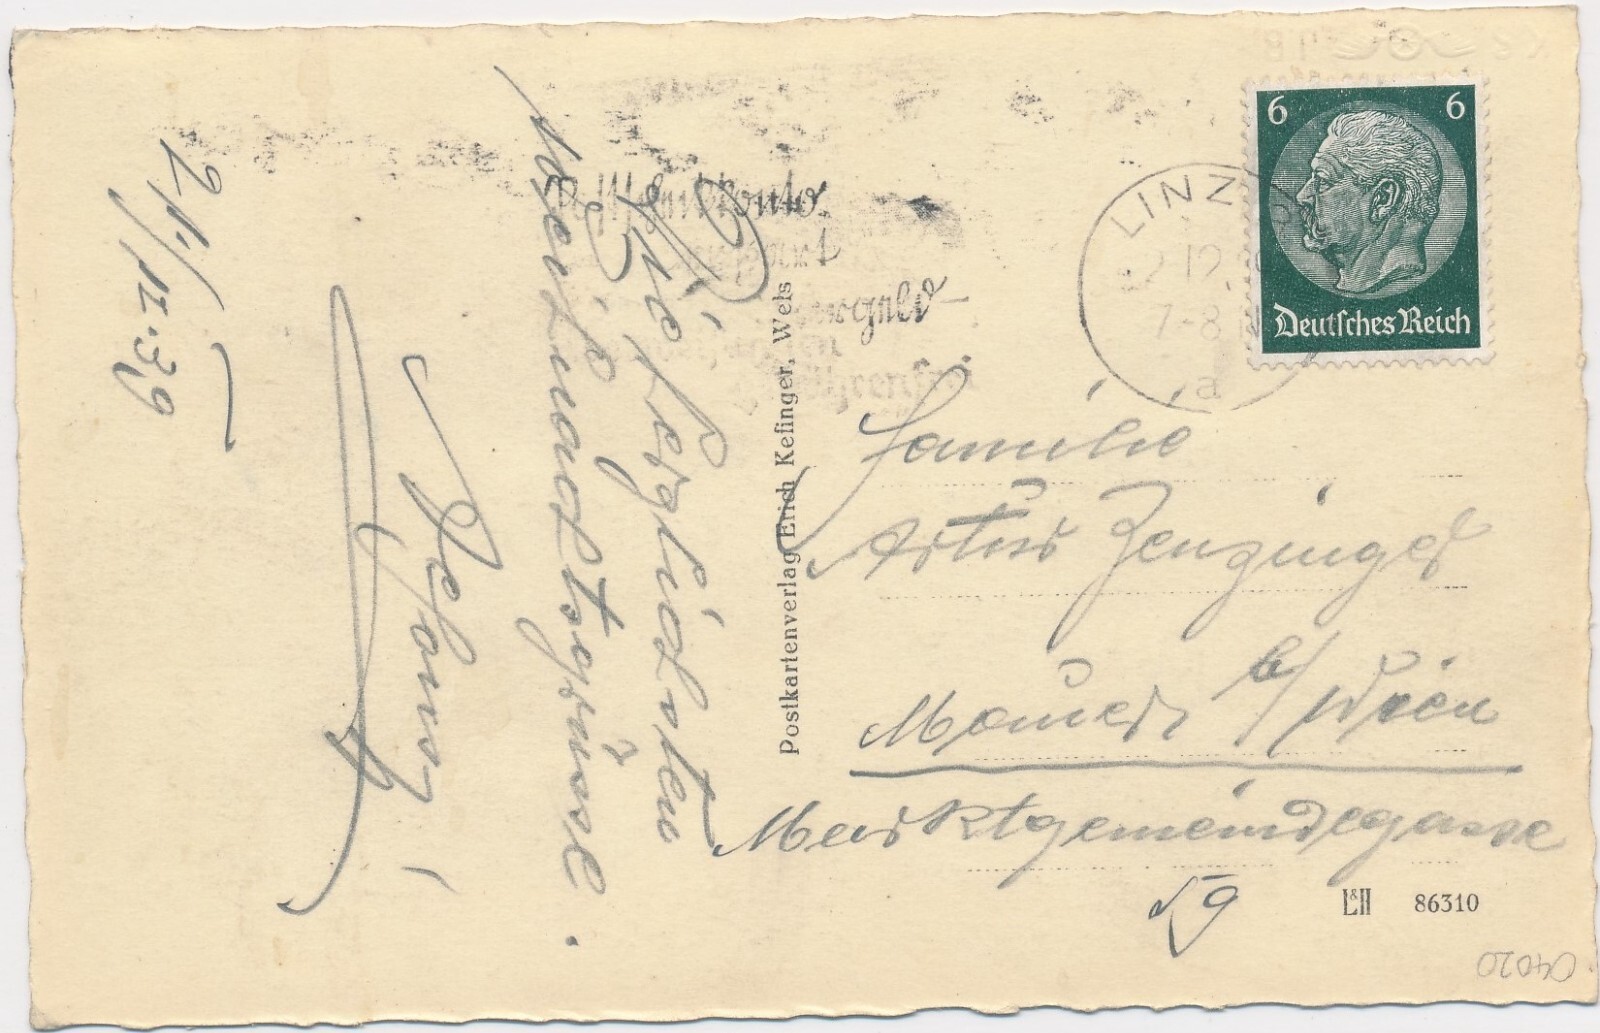 Die herzlichsten
Weihnachtsgrüsse.
21./XII.39
Postkartenverlag Erich Kefinger, Wels
LINZ
7-8
a
6 6
Deutsches Reich
Familie
Artur Zenzinger
Mauer b/Wien
Marktgemeindegasse
59
L&H 86310
04020